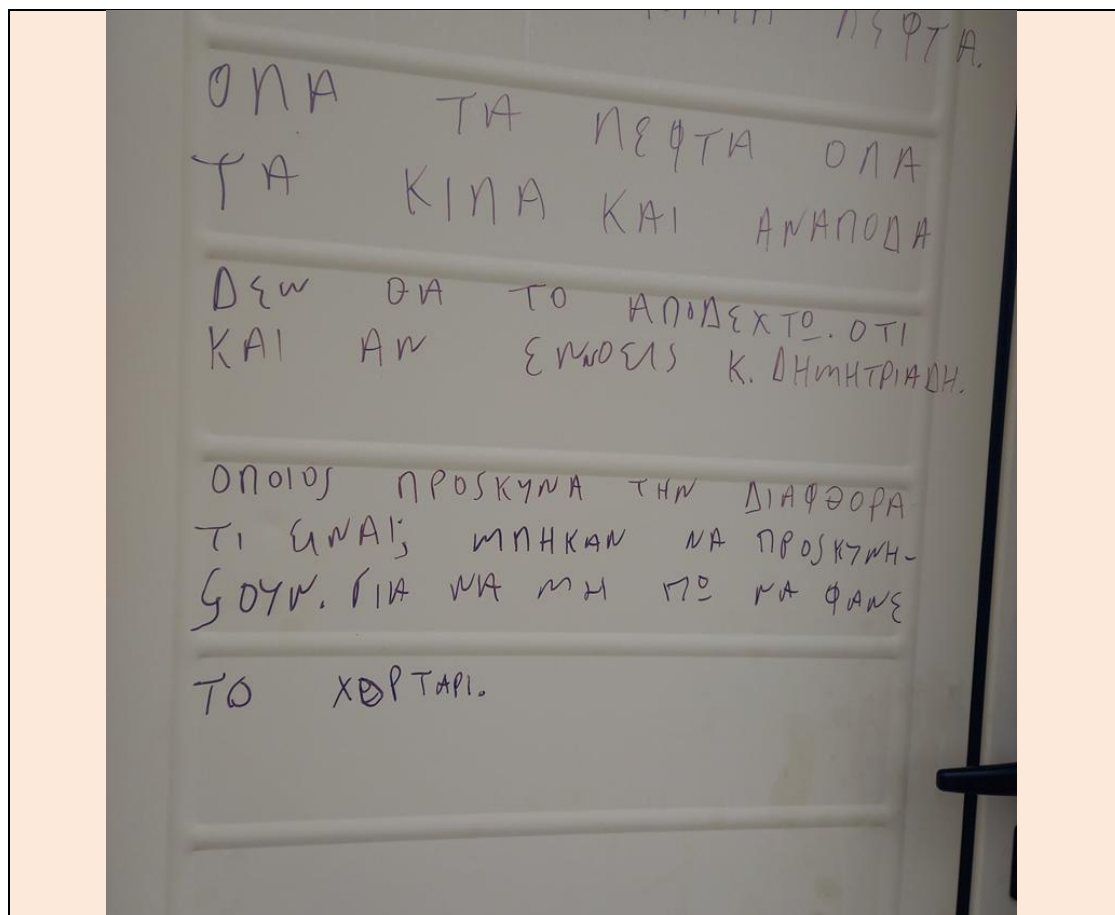 ΛΕΦΤΑ.
ΟΛΑ ΤΑ ΛΕΦΤΑ ΟΛΑ
ΤΑ ΚΙΛΑ ΚΑΙ ΑΝΑΠΟΔΑ
ΔΕΝ ΘΑ ΤΟ ΑΠΟΔΕΧΤΩ. ΟΤΙ
ΚΑΙ ΑΝ ΕΝΝΟΕΙΣ Κ. ΔΗΜΗΤΡΙΑΔΗ.
ΟΠΟΙΟΣ ΠΡΟΣΚΥΝΑ ΤΗΝ ΔΙΑΦΘΟΡΑ
ΤΙ ΕΙΝΑΙ; ΜΠΗΚΑΝ ΝΑ ΠΡΟΣΚΥΝΗ-
ΣΟΥΝ. ΓΙΑ ΝΑ ΜΗ ΠΩ ΝΑ ΦΑΝΕ
ΤΟ ΧΟΡΤΑΡΙ.